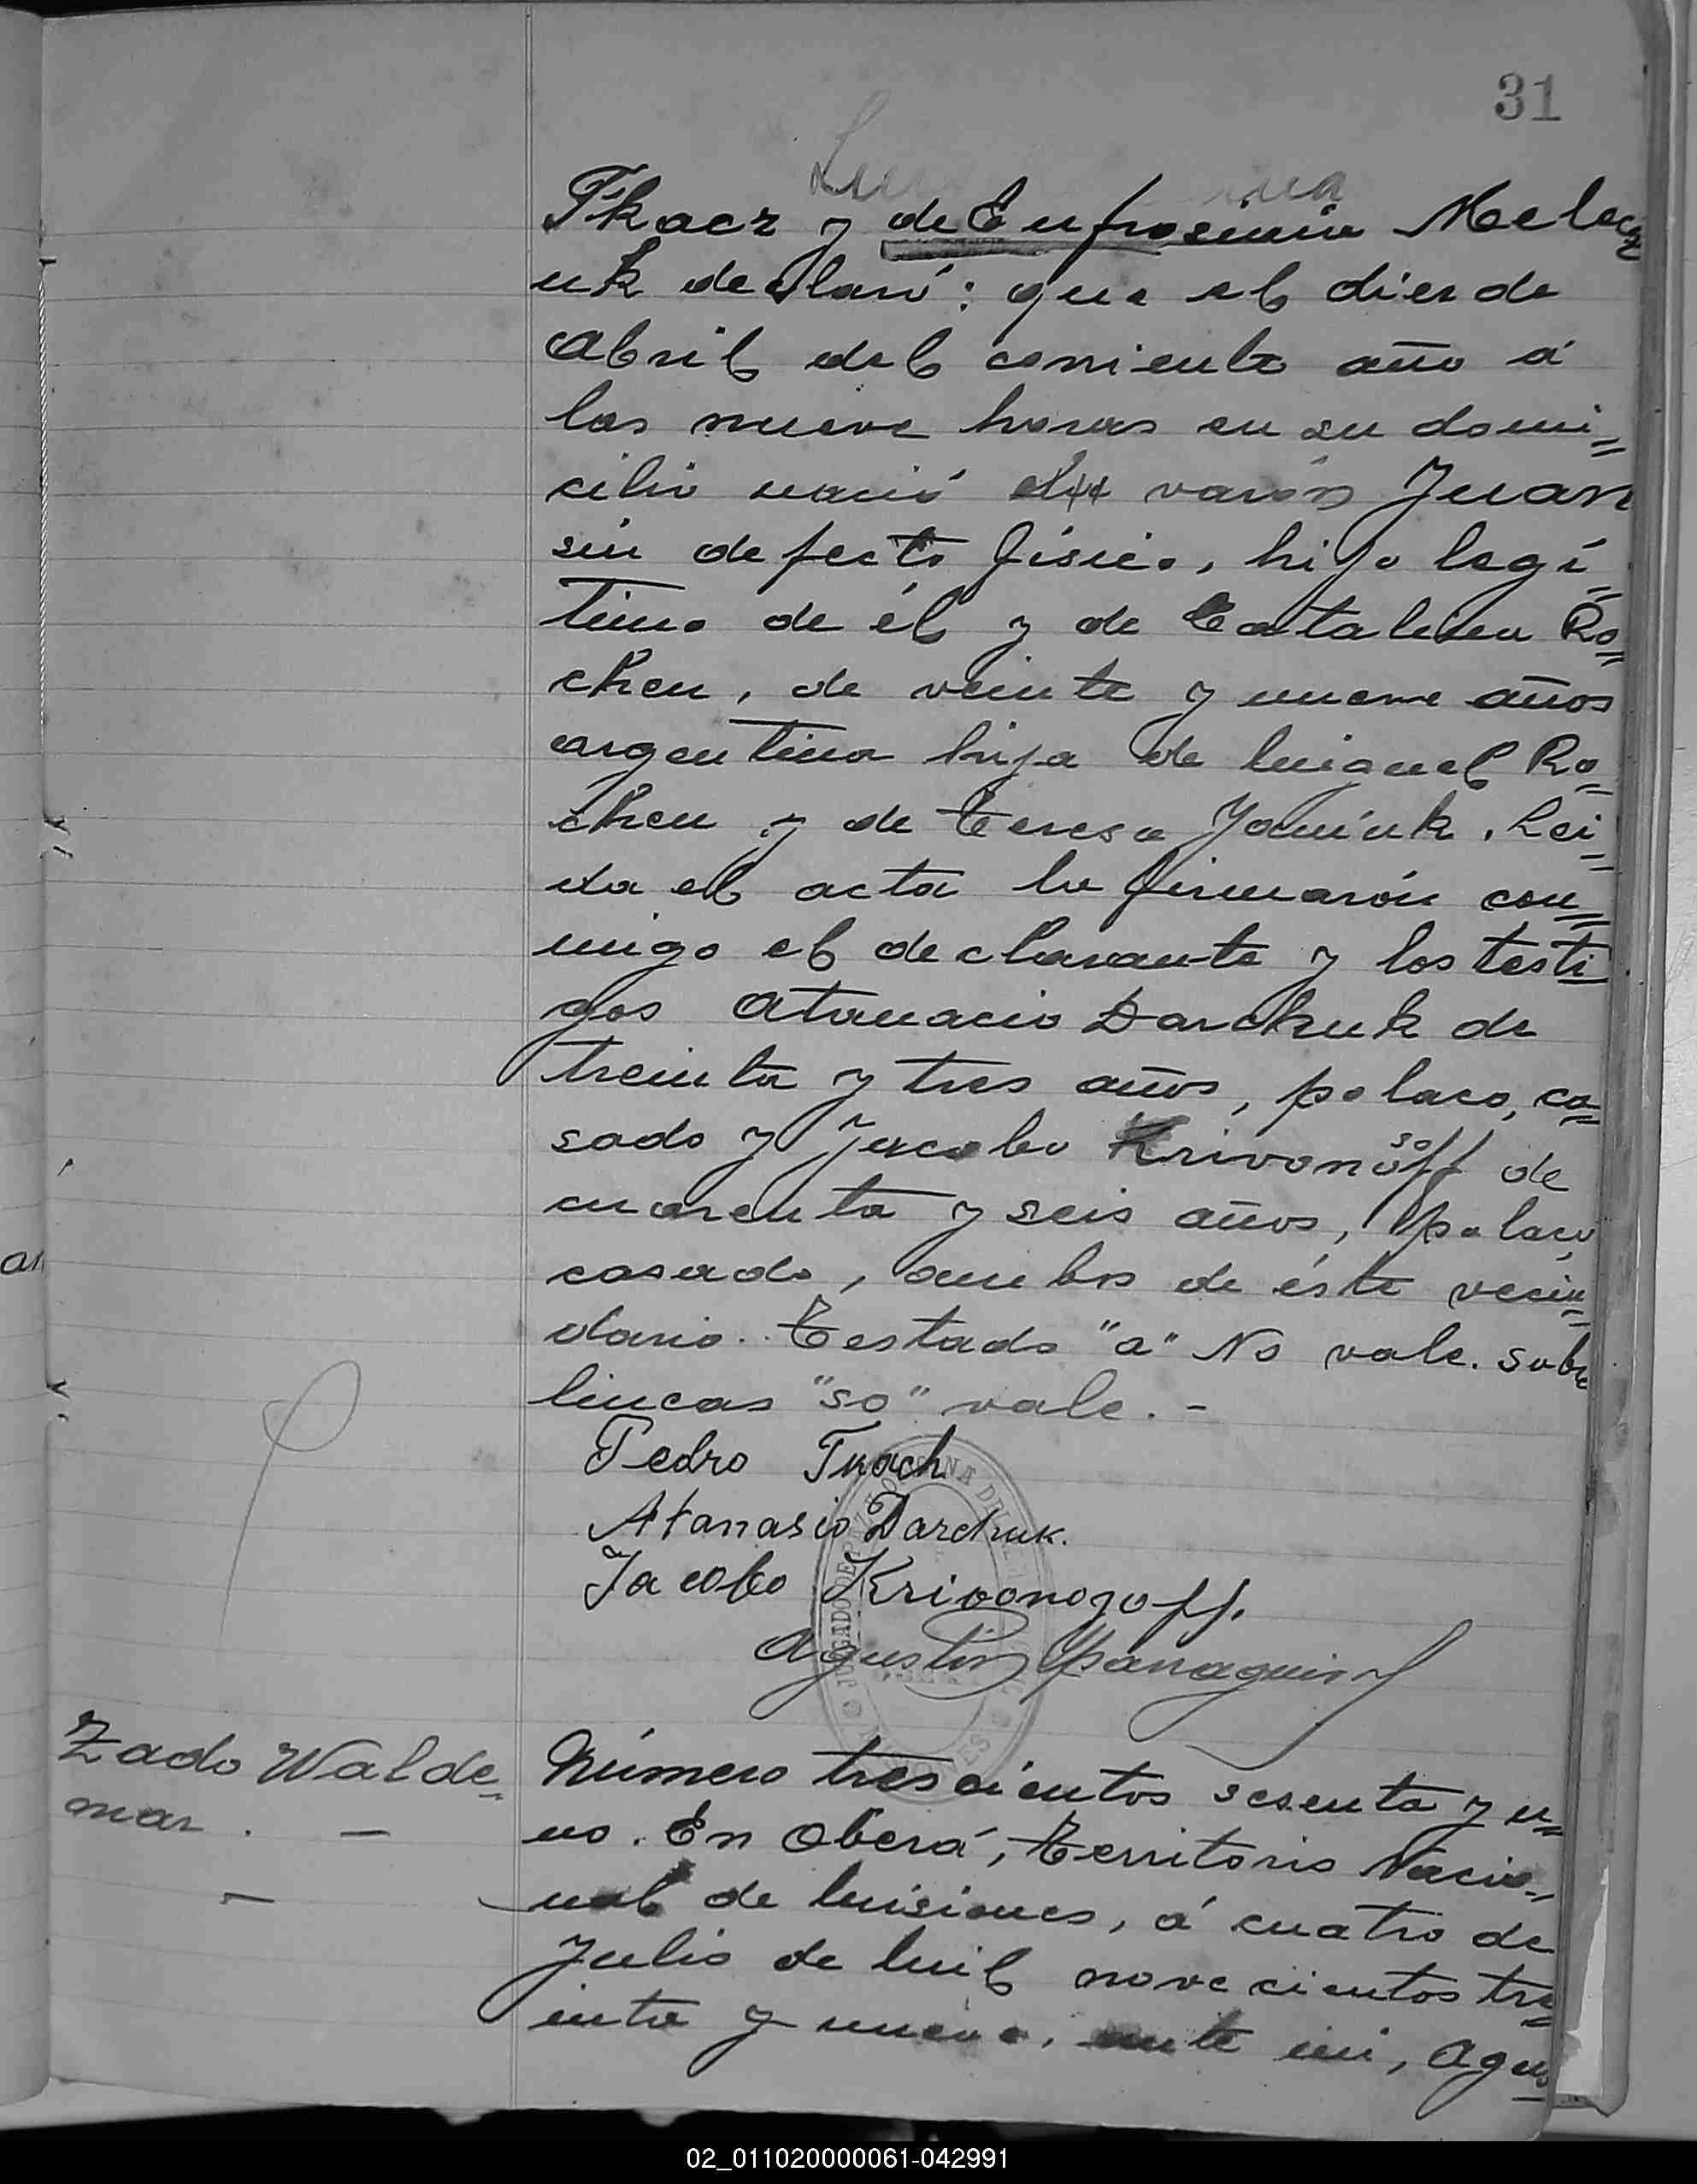 31
Tkacz y de Eufrosinia Melecz
uk declaró: que el diez de
Abril del corriente año á
las nueve horas en su domi=
cilio nació el varón Juan
sin defecto físico, hijo legí=
timo de él y de Catalina Ro=
chen, de veinte y nueve años
argentina hija de Miguel Ro=
chen y de Teresa Yaniuk. Lei=
da el acta la firmarón con=
migo el declarante y los testi
gos Atanacio Darchuk de
treinta y tres años, polaco, ca=
sado y Jacobo Krivonosoff de
cuarenta y seis años, polaco,
casado, ambos de éste vecin=
dario. Testado "a" No vale. Sobre
lineas "so" vale. -
Pedro Tkach
Atanasio Darchuk.
Jacobo Krivonozoff.
Agustin
Zado Walde=
mar. -
Número trescientos sesenta y u=
no. En Oberá, Territorio Nacio=
nal de Misiones, á cuatro de
Julio de mil novecientos tre
inta y nueve, ante mi, Agus
02_011020000061-042991